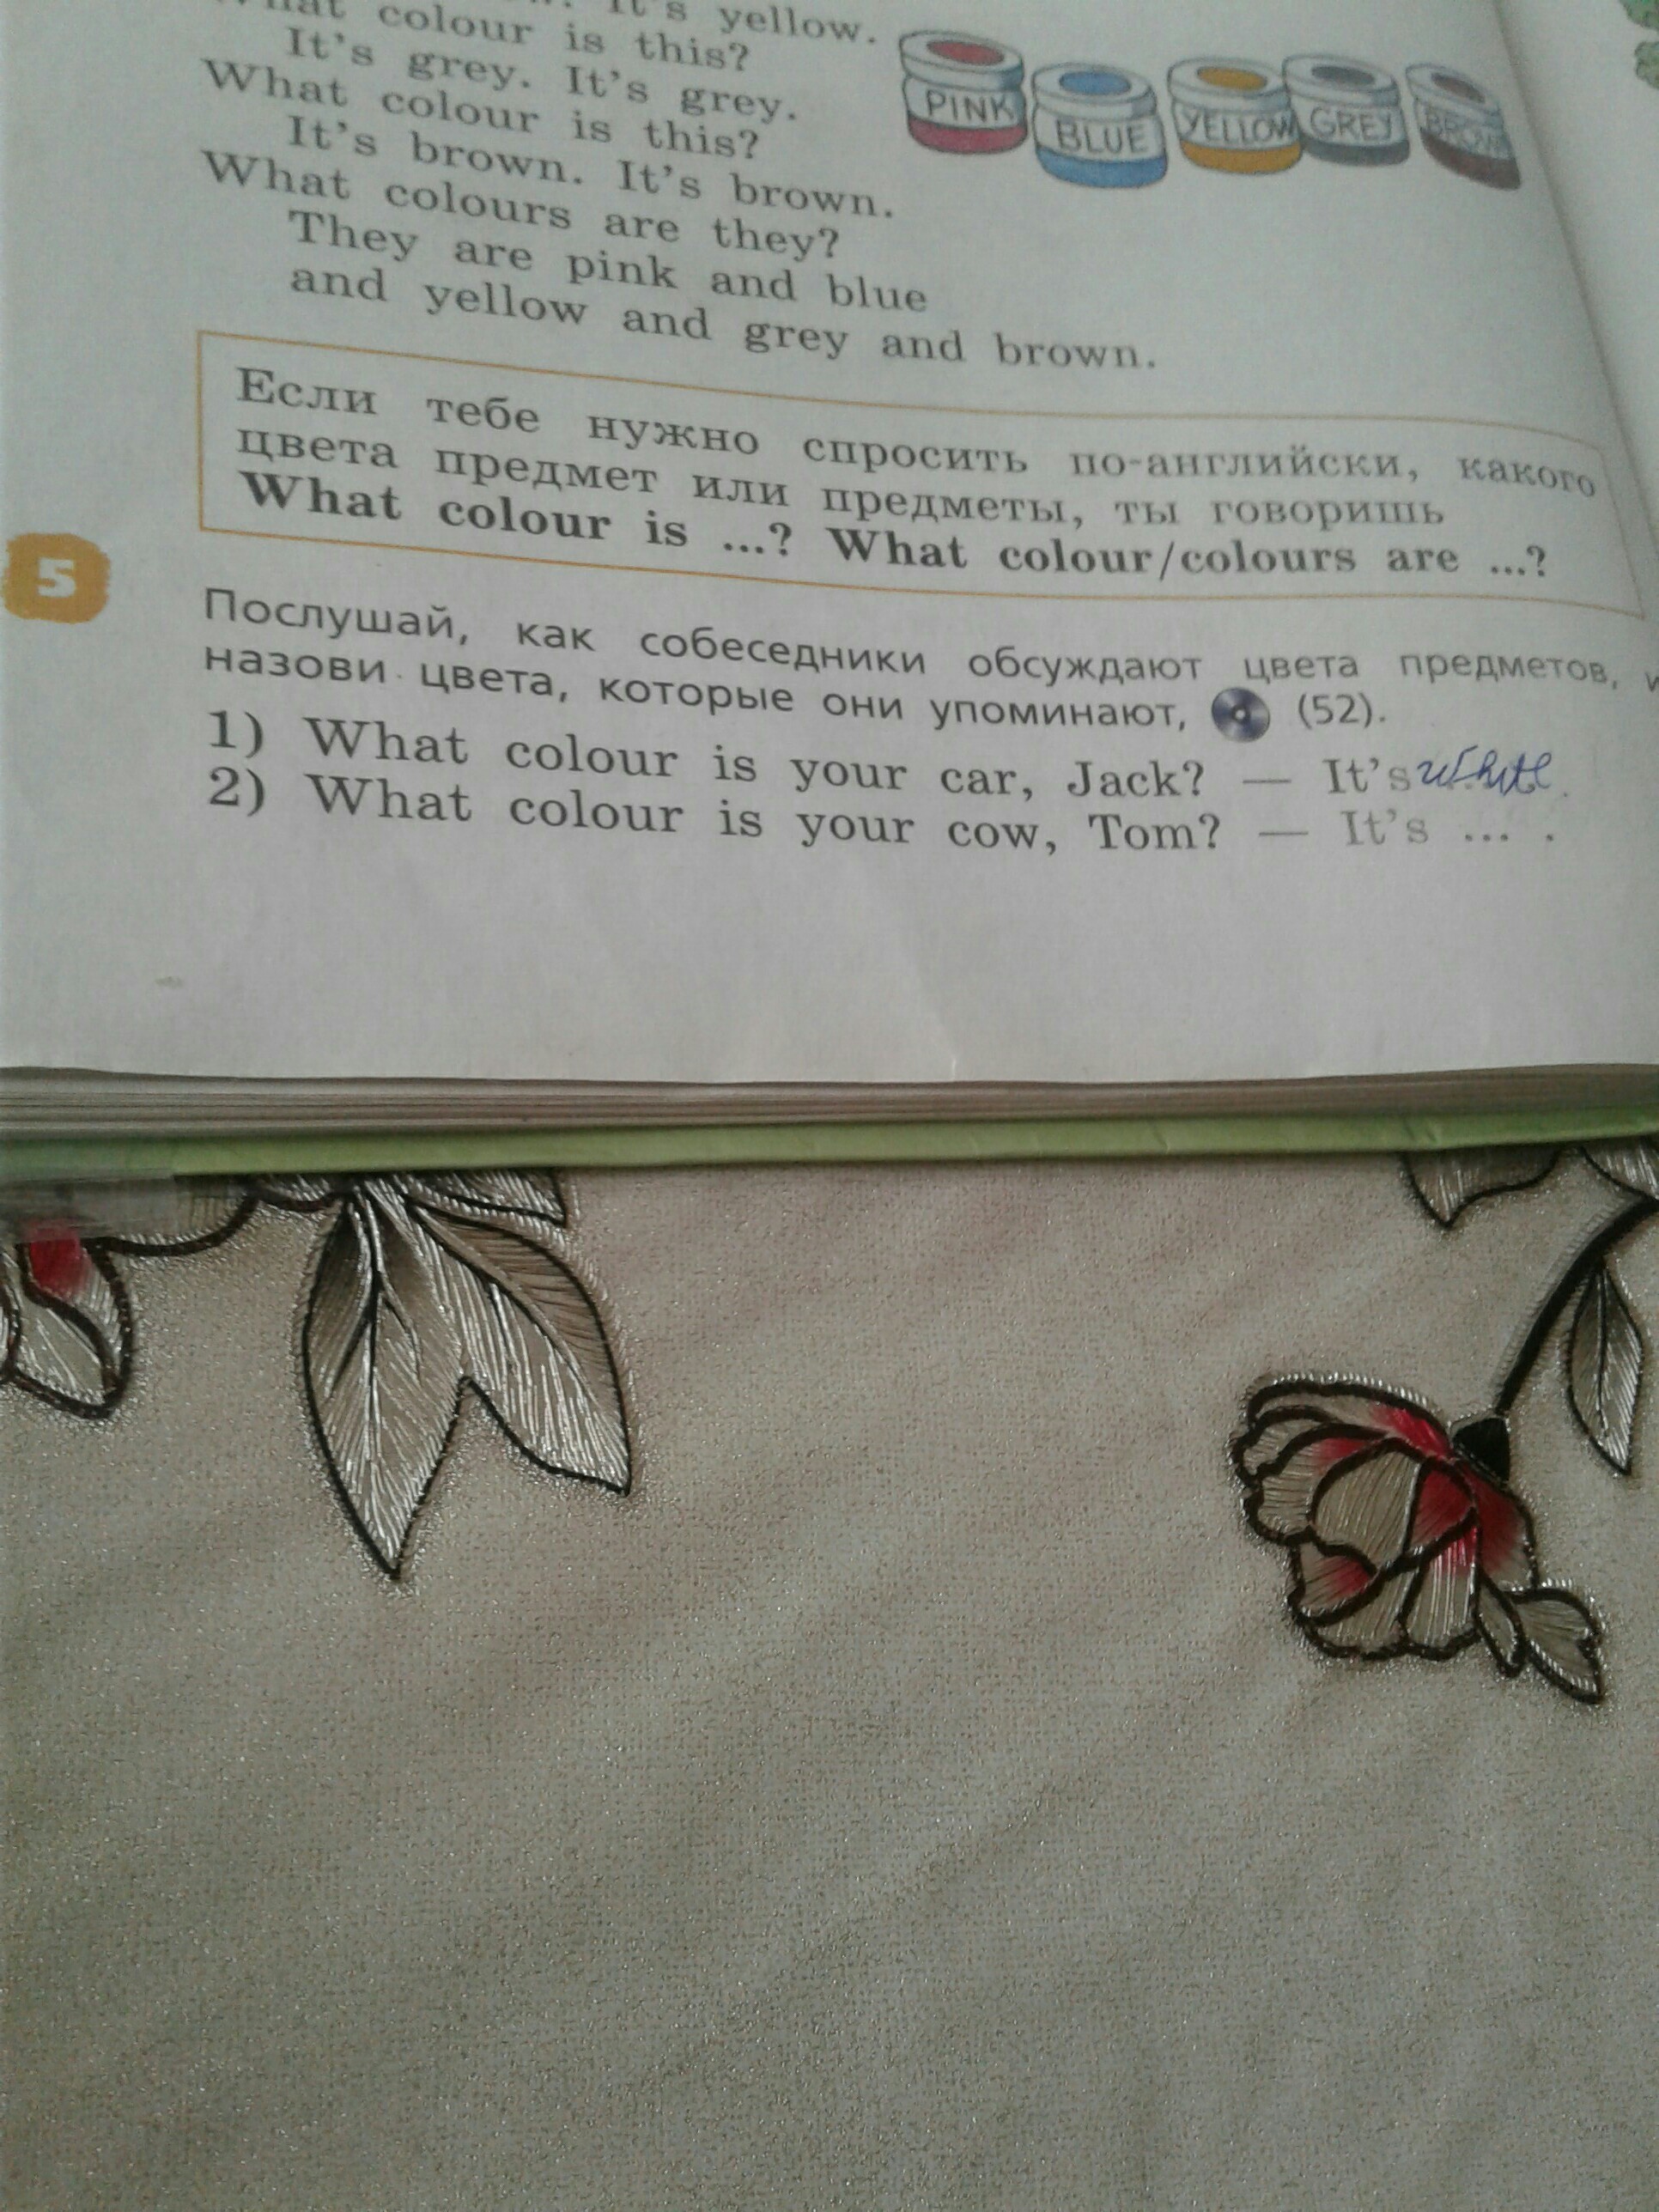 It's yellow.
What colour is this?
It's grey. It's grey.
What colour is this?
It's brown. It's brown.
What colours are they?
They are pink and blue
and yellow and grey and brown.
PINK
BLUE
YELLOW
GREY
BROWN
Если тебе нужно спросить по-английски, какого
цвета предмет или предметы, ты говоришь
What colour is ...? What colour/colours are ...?
5
Послушай, как собеседники обсуждают цвета предметов, и
назови цвета, которые они упоминают, (52).
1) What colour is your car, Jack? — It's white.
2) What colour is your cow, Tom? — It's ... .